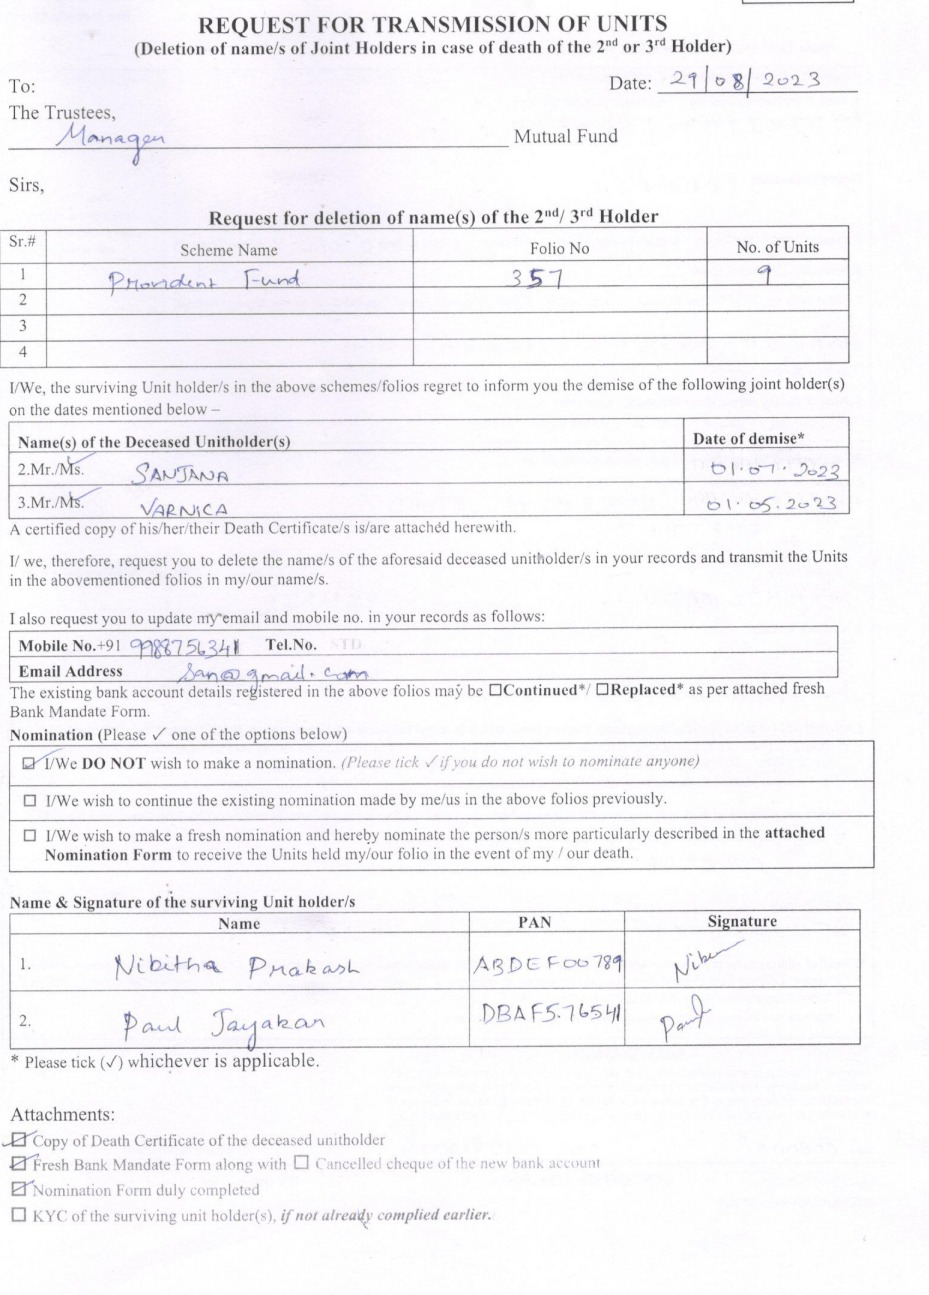 REQUEST FOR TRANSMISSION OF UNITS
(Deletion of name/s of Joint Holders in case of death of the 2nd or 3rd Holder)
To: Date: 29/08/2023
The Trustees,
Manager Mutual Fund
Sirs,
Request for deletion of name(s) of the 2nd/ 3rd Holder
Sr.# Scheme Name Folio No No. of Units
1 Provident Fund 357 9
2
3
4
I/We, the surviving Unit holder/s in the above schemes/folios regret to inform you the demise of the following joint holder(s)
on the dates mentioned below –
Name(s) of the Deceased Unitholder(s) Date of demise*
2.Mr./Ms. SANJANA 01.07.2023
3.Mr./Ms. VARNICA 01.05.2023
A certified copy of his/her/their Death Certificate/s is/are attached herewith.
I/ we, therefore, request you to delete the name/s of the aforesaid deceased unitholder/s in your records and transmit the Units
in the abovementioned folios in my/our name/s.
I also request you to update my email and mobile no. in your records as follows:
Mobile No.+91 9988756341 Tel.No. STD
Email Address San@gmail.com
The existing bank account details registered in the above folios may be ☐Continued*/ ☐Replaced* as per attached fresh
Bank Mandate Form.
Nomination (Please ✓ one of the options below)
☑ I/We DO NOT wish to make a nomination. (Please tick ✓ if you do not wish to nominate anyone)
☐ I/We wish to continue the existing nomination made by me/us in the above folios previously.
☐ I/We wish to make a fresh nomination and hereby nominate the person/s more particularly described in the attached
Nomination Form to receive the Units held my/our folio in the event of my / our death.
Name & Signature of the surviving Unit holder/s
Name PAN Signature
1. Nibitha Prakash ABDEF00789 Nibe
2. Paul Jayakar DBAF5.76541 Paul
* Please tick (✓) whichever is applicable.
Attachments:
☑ Copy of Death Certificate of the deceased unitholder
☑ Fresh Bank Mandate Form along with ☐ Cancelled cheque of the new bank account
☑ Nomination Form duly completed
☐ KYC of the surviving unit holder(s), if not already complied earlier.